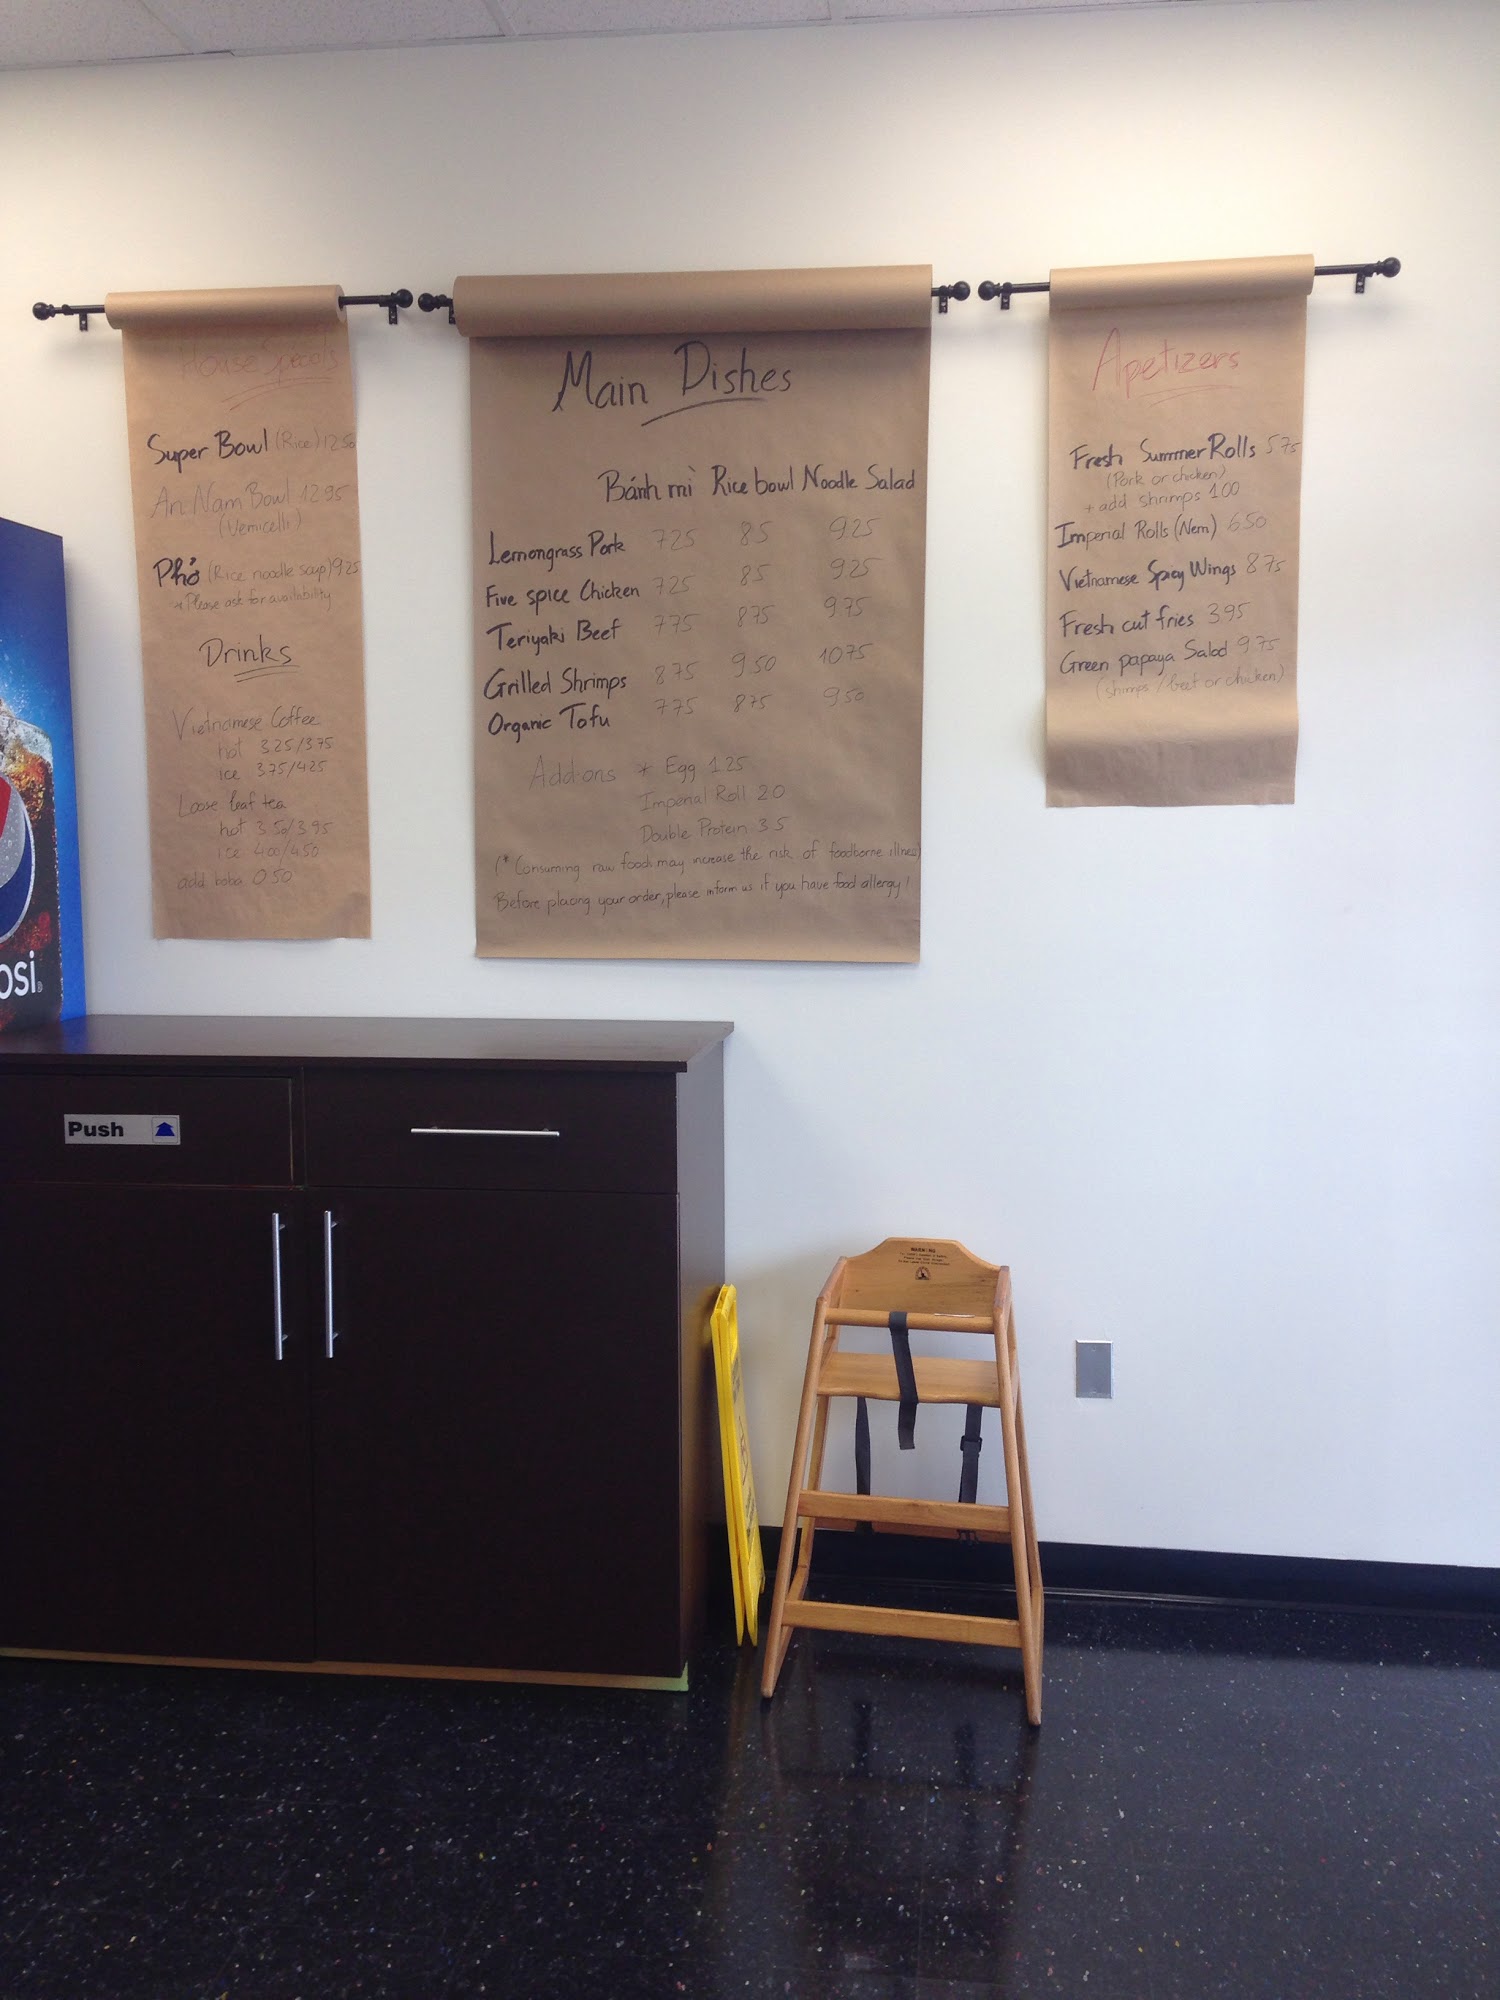 House Specials
Super Bowl (Rice) 12.50
An Nam Bowl 12.95
(Vermicelli)
Phở (Rice noodle soup) 9.25
* Please ask for availability
Drinks
Vietnamese Coffee
hot 3.25/3.75
ice 3.75/4.25
Loose leaf tea
hot 3.50/3.95
ice 4.00/4.50
add boba 0.50
Main Dishes
Bánh mì Rice bowl Noodle Salad
Lemongrass Pork 7.25 8.5 9.25
Five spice Chicken 7.25 8.5 9.25
Teriyaki Beef 7.75 8.75 9.75
Grilled Shrimps 8.75 9.50 10.75
Organic Tofu 7.75 8.75 9.50
Add-ons * Egg 1.25
Imperial Roll 2.0
Double Protein 3.5
(* Consuming raw foods may increase the risk of foodborne illnes)
Before placing your order, please inform us if you have food allergy!
Apetizers
Fresh Summer Rolls 5.75
(Pork or chicken)
+ add shrimps 1.00
Imperial Rolls (Nem) 6.50
Vietnamese Spicy Wings 8.75
Fresh cut fries 3.95
Green papaya Salad 9.75
(shrimps / beef or chicken)
osi
Push
WARNING